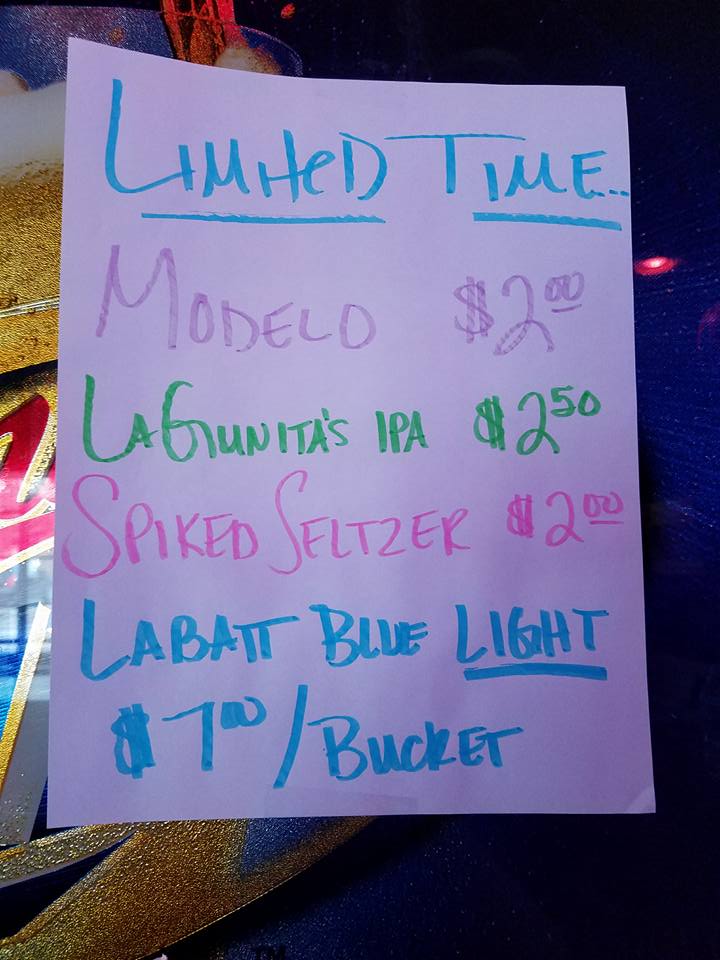 LIMITED TIME..
MODELO $2.00
LAGUNITA'S IPA $2.50
SPIKED SELTZER $2.00
LABATT BLUE LIGHT
$7.00/BUCKET
TM